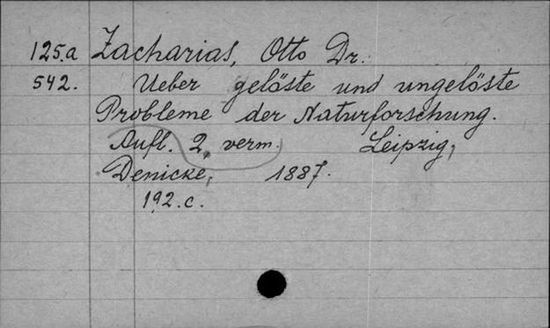 125.a Zacharias, Otto Dr.
542. Ueber gelöste und ungelöste
Probleme der Naturforschung.
Aufl. 2, verm. Leipzig,
Denicke, 1887.
192.c.